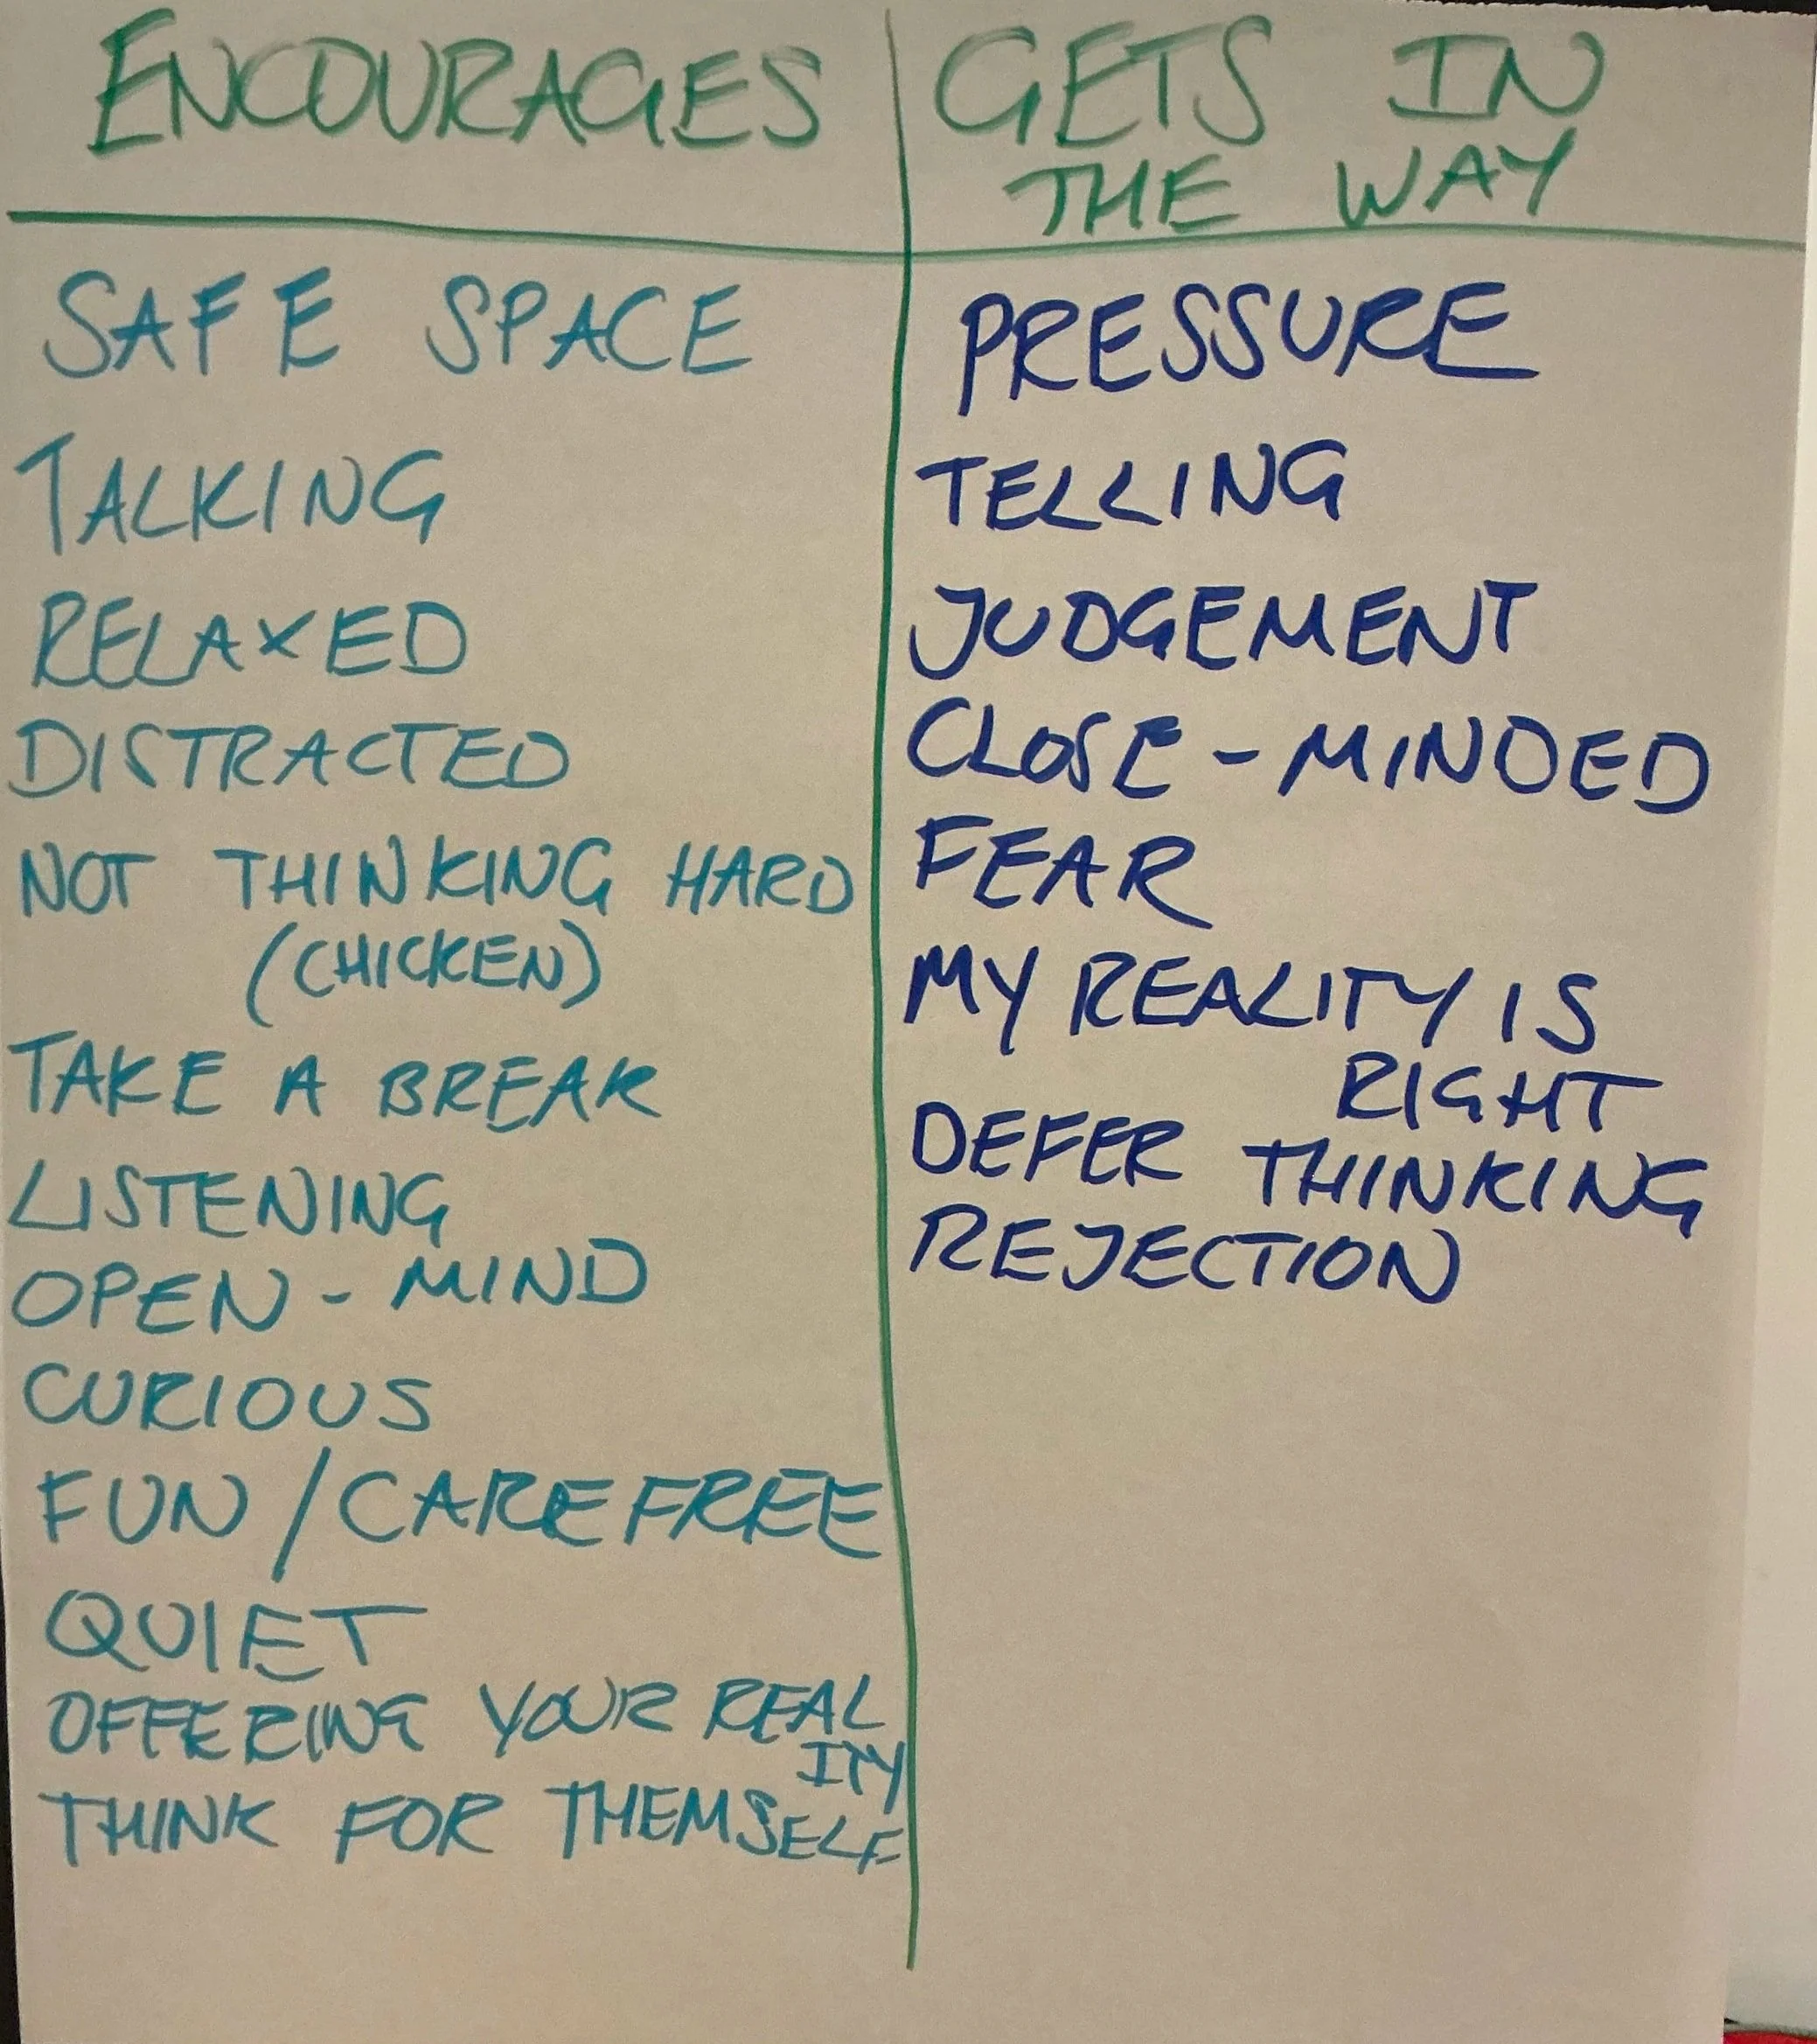 ENCOURAGES
SAFE SPACE
TALKING
RELAXED
DISTRACTED
NOT THINKING HARD
(CHICKEN)
TAKE A BREAK
LISTENING
OPEN - MIND
CURIOUS
FUN / CAREFREE
QUIET
OFFERING YOUR REAL
ITY
THINK FOR THEMSELF
GETS IN
THE WAY
PRESSURE
TELLING
JUDGEMENT
CLOSE - MINDED
FEAR
MY REALITY IS
RIGHT
DEFER THINKING
REJECTION